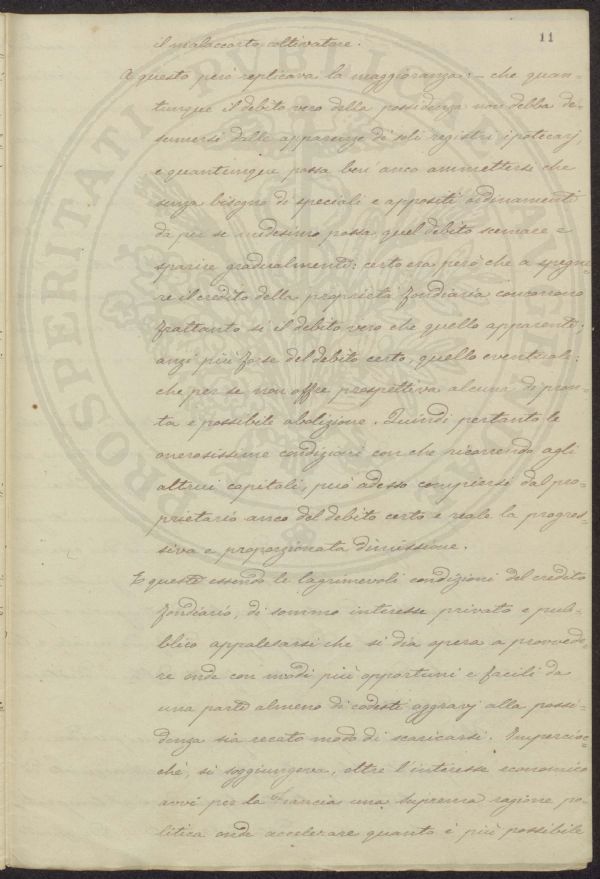 11
il malaccorto coltivatore.
A questo però replicava la maggioranza: – che quan=
tunque il debito vero della possidenza non debba de=
sumersi dalle apparenze di soli registri ipotecarj,
e quantunque possa ben' anco ammettersi che
senza bisogno di speciali e appositi ordinamenti
da per se medesimo possa quel debito scemare e
sparire gradualmente: certo era però che a spegne=
re il credito della proprietà fondiaria concorrono
frattanto sì il debito vero che quello apparente;
anzi più forse del debito certo, quello eventuale:
che per se non offre prospettiva alcuna di pron=
ta e possibile abolizione. Quindi pertanto le
onerosissime condizioni con che ricorrendo agli
altrui capitali, può adesso compiersi dal pro=
prietario anco del debito certo e reale la progres=
siva e proporzionata dimissione.
E queste essendo le lagrimevoli condizioni del credito
fondiario, di sommo interesse privato e pub=
blico appalesarsi che si dia opera a provvede=
re onde con modi più opportuni e facili da
una parte almeno di codesti aggravj alla possi=
denza sia recato modo di scaricarsi. Impercioc=
chè, si soggiungeva, oltre l'interesse economico
avvi per la Francia una suprema ragione po=
litica onde accelerare quanto è più possibile
PROSPERITATI PUBLICAE AUGENDAE